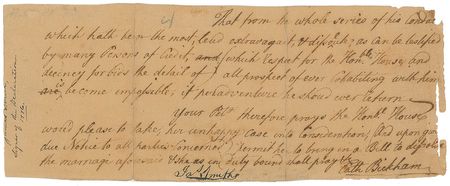 That from the whole series of his Conduct
which hath been the most, lewd extravagant, & dissolute as can be testified
by many Persons of Credit, and (which respect for the Honble. House, and
decency forbids the detail of) all prospect of ever cohabiting with him
are become impossible, if peradventure he should ever return
Your Petr. therefore prays the Honble. House
would please to take, her unhappy case into Consideration, And upon giving
due Notice to all parties Concerned, permit her to bring in a Bill to dissolve
the marriage aforesaid & she as in duty bound shall pray &c
Jas. Smith
Cath Bickham
Signer of the Declaration
1776